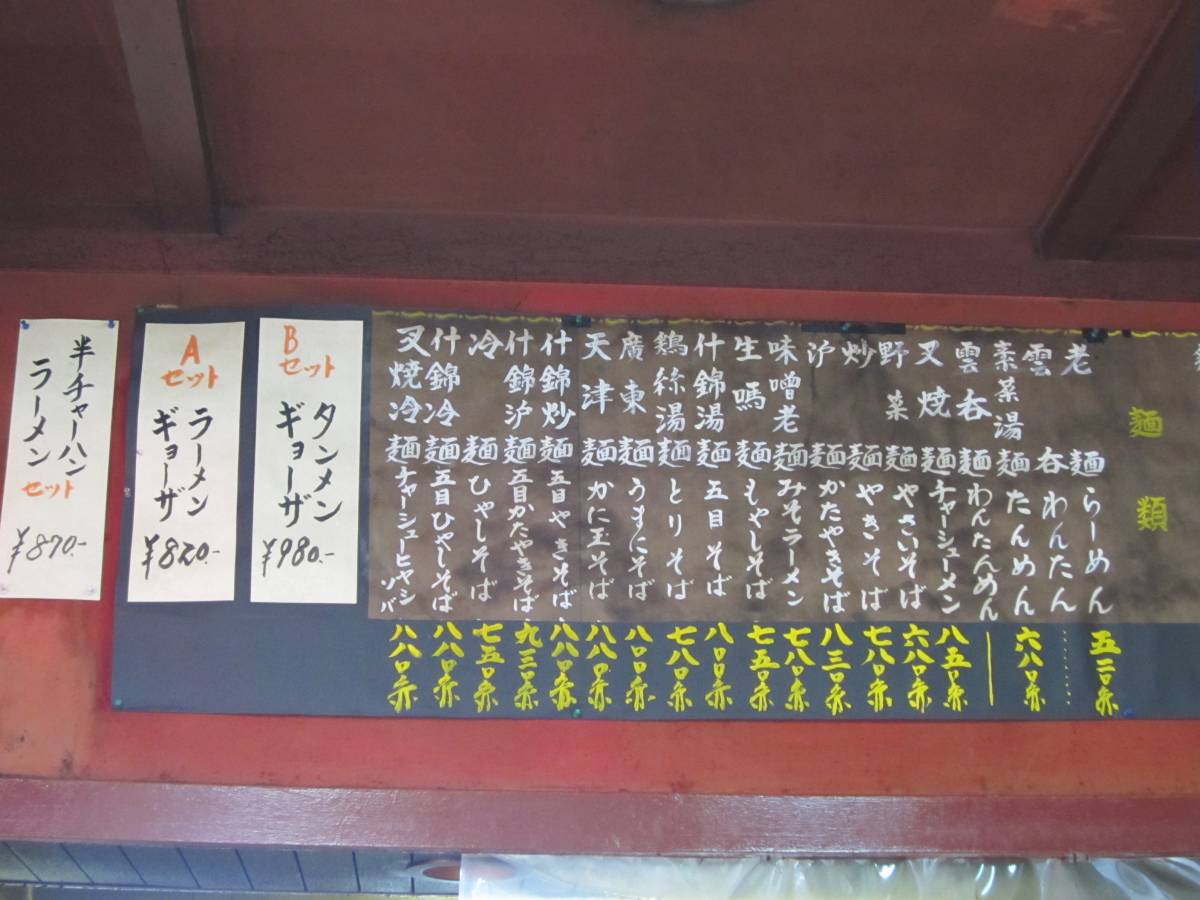 麺類
老麺 らーめん 五二〇円
雲呑 わんたん ……
素菜湯麺 たんめん 六八〇円
雲呑麺 わんたんめん
叉焼麺 チャーシューメン 八五〇円
野菜麺 やさいそば 六八〇円
炒麺 やきそば 七八〇円
沪麺 かたやきそば 八三〇円
味噌老麺 みそラーメン 七八〇円
生嗎麺 もやしそば 七五〇円
什錦湯麺 五目そば 八〇〇円
鶏絲湯麺 とりそば 七八〇円
廣東麺 うまにそば 八〇〇円
天津麺 かに玉そば 八八〇円
什錦炒麺 五目やきそば 八八〇円
什錦沪麺 五目かたやきそば 九三〇円
冷麺 ひやしそば 七五〇円
什錦冷麺 五目ひやしそば 八八〇円
叉焼冷麺 チャーシューヒヤシソバ 八八〇円
Bセット
タンメン
ギョーザ
¥980.-
Aセット
ラーメン
ギョーザ
¥820.-
半チャーハン
ラーメン
セット
¥870.-